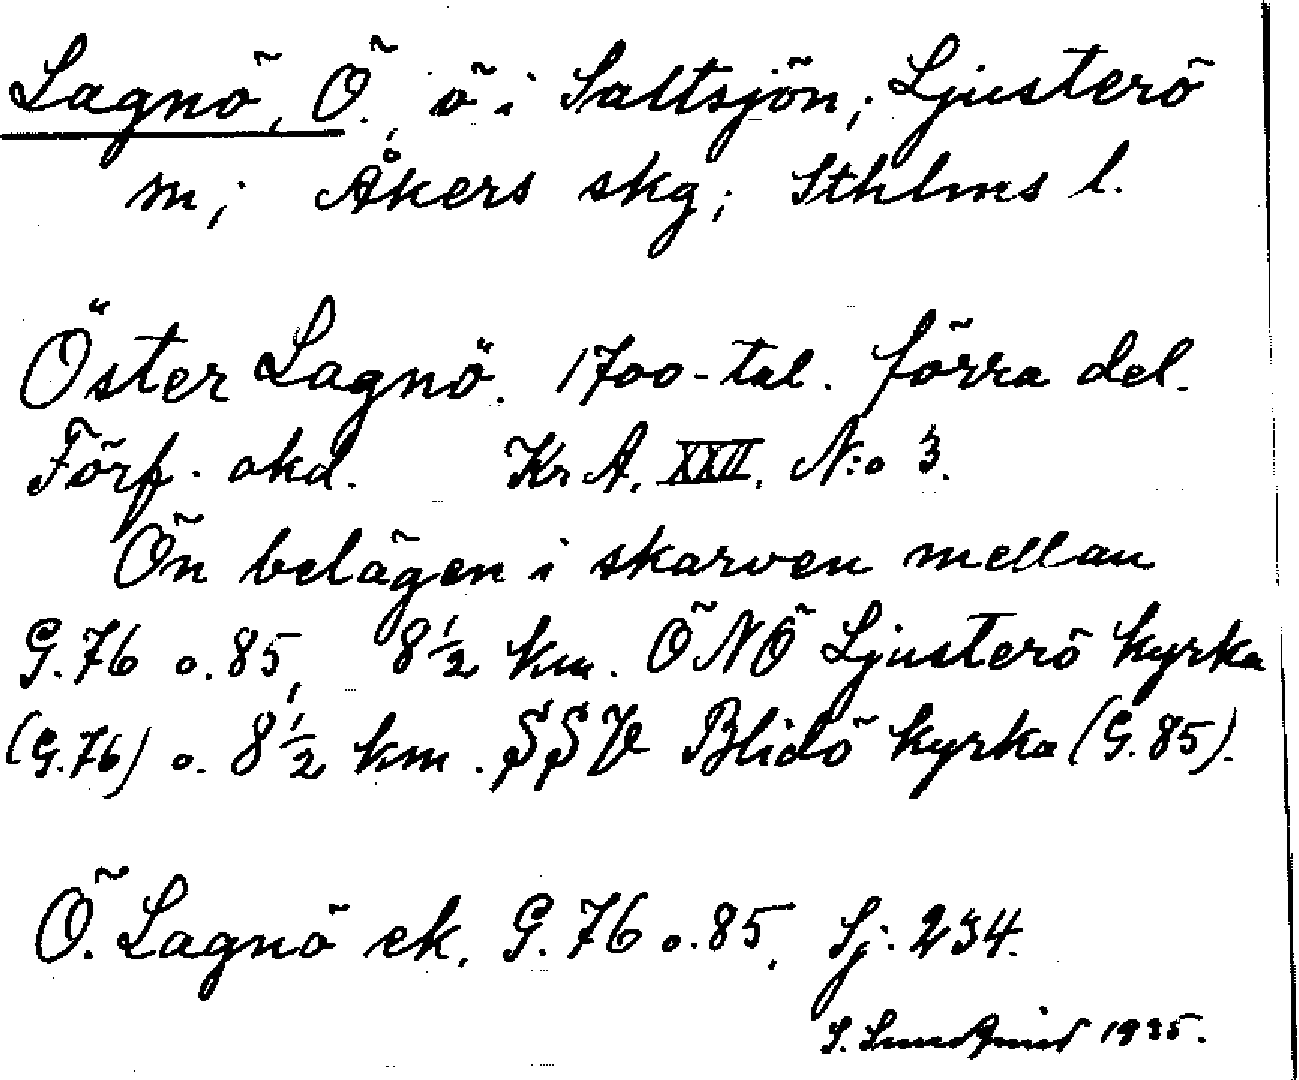 Lagnö, Ö., ö i Saltsjön; Ljusterö
sn; Åkers skg; Sthlms l.
Öster Lagnö. 1700-tal. förra del.
Förf. okd. Kr A. XXII. N:o 3.
Ön belägen i skarven mellan
G.76 o. 85, 8 1/2 km. ÖNÖ Ljusterö kyrka
(G.76) o. 8 1/2 km. SSV Blidö kyrka (G. 85).
Ö. Lagnö ek. G. 76 o. 85. Sj. 234.
S. Lundqvist 1935.